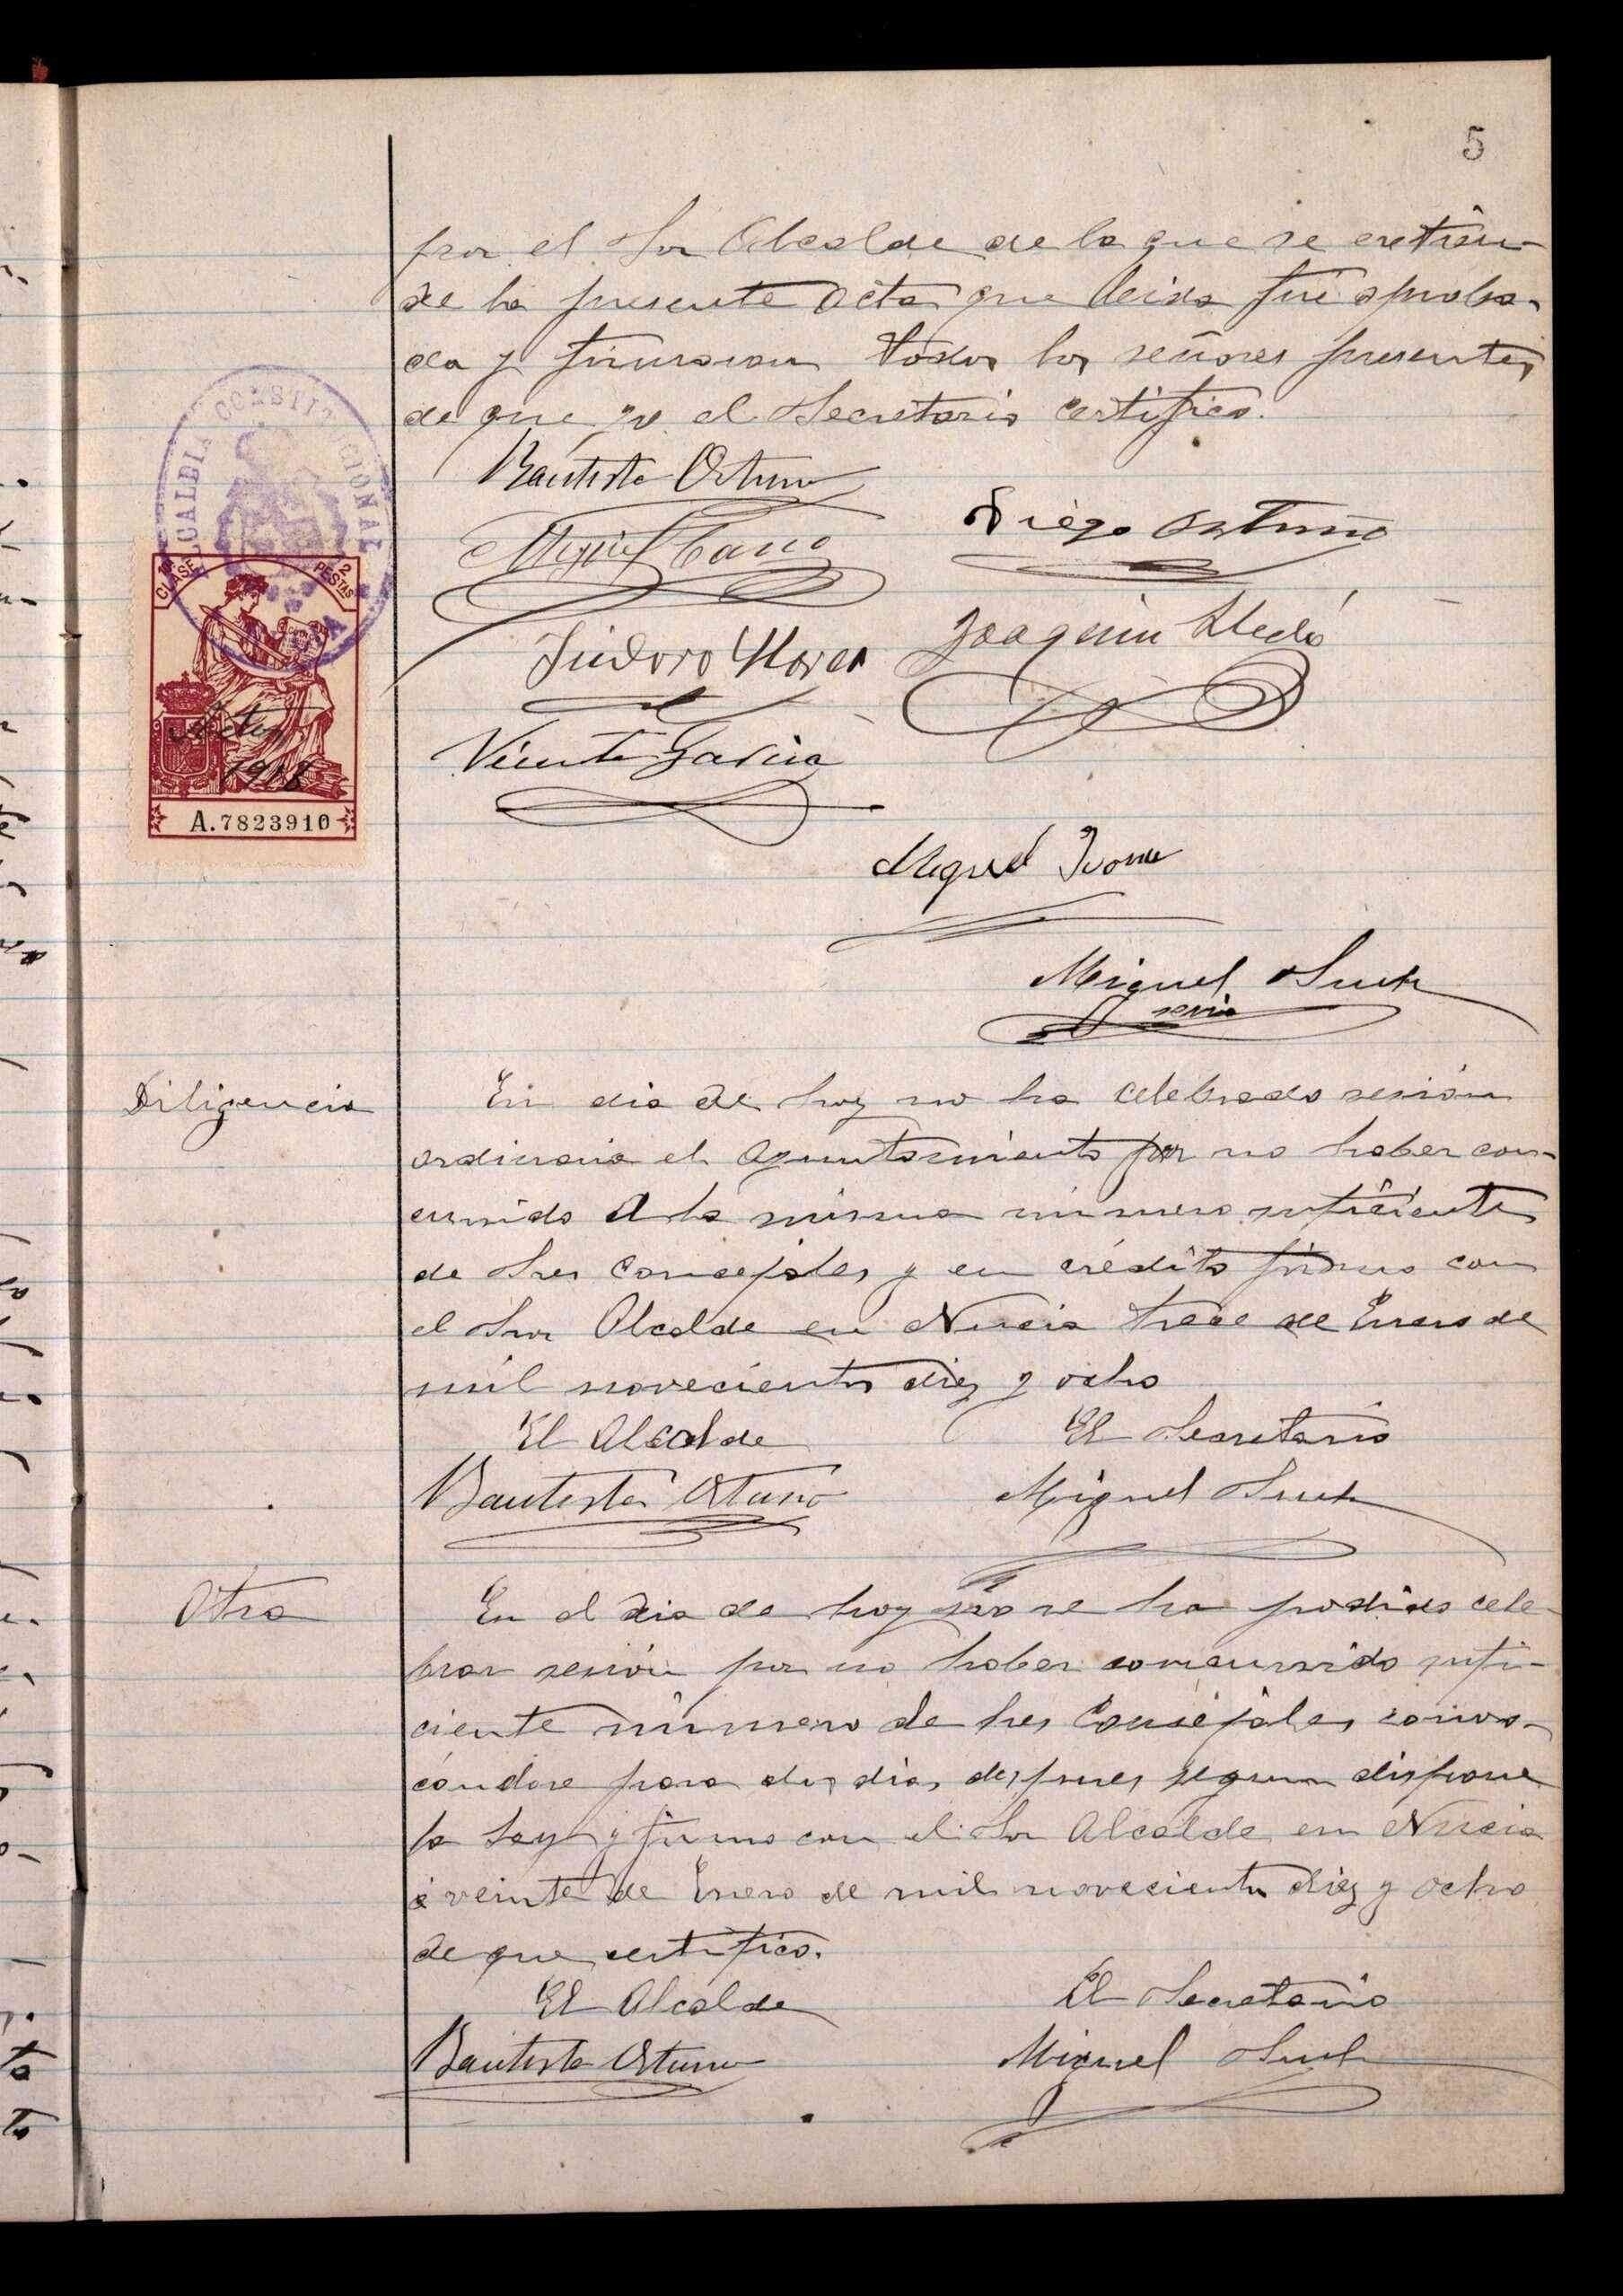 5
por el Sor Alcalde de la que se extien-
de la presente acta que leida fué aproba-
da y firmaron todos los señores presentes
de que yo el Secretario certifico.
Bautista Ortuño
Miguel Cano
Diego Ortuño
Isidoro Llorca
Joaquin Lledó
Vicente Garcia
Miguel
Miguel Such
serio
ALCALDIA CONSTITUCIONAL
1ª CLASE
2 PESTAS
Actas
1918
A.7823910
Diligencia
En dia de hoy no ha celebrado sesión
ordinaria el Ayuntamiento por no haber con-
currido a la misma número suficiente
de Sres Concejales, y en crédito firmo con
el Sor Alcalde en Nucia trece de Enero de
mil novecientos diez y ocho
El Alcalde
El Secretario
Bautista Ortuño
Miguel Such
Otra
En el dia de hoy no se ha podido cele-
brar sesión por no haber concurrido sufi-
ciente número de Sres Concejales, convo-
cándose para dos dias despues segun dispone
la Ley y firmo con el Sor Alcalde en Nucia
á veinte de Enero de mil novecientos diez y ocho
de que certifico.
El Alcalde
El Secretario
Bautista Ortuño
Miguel Such